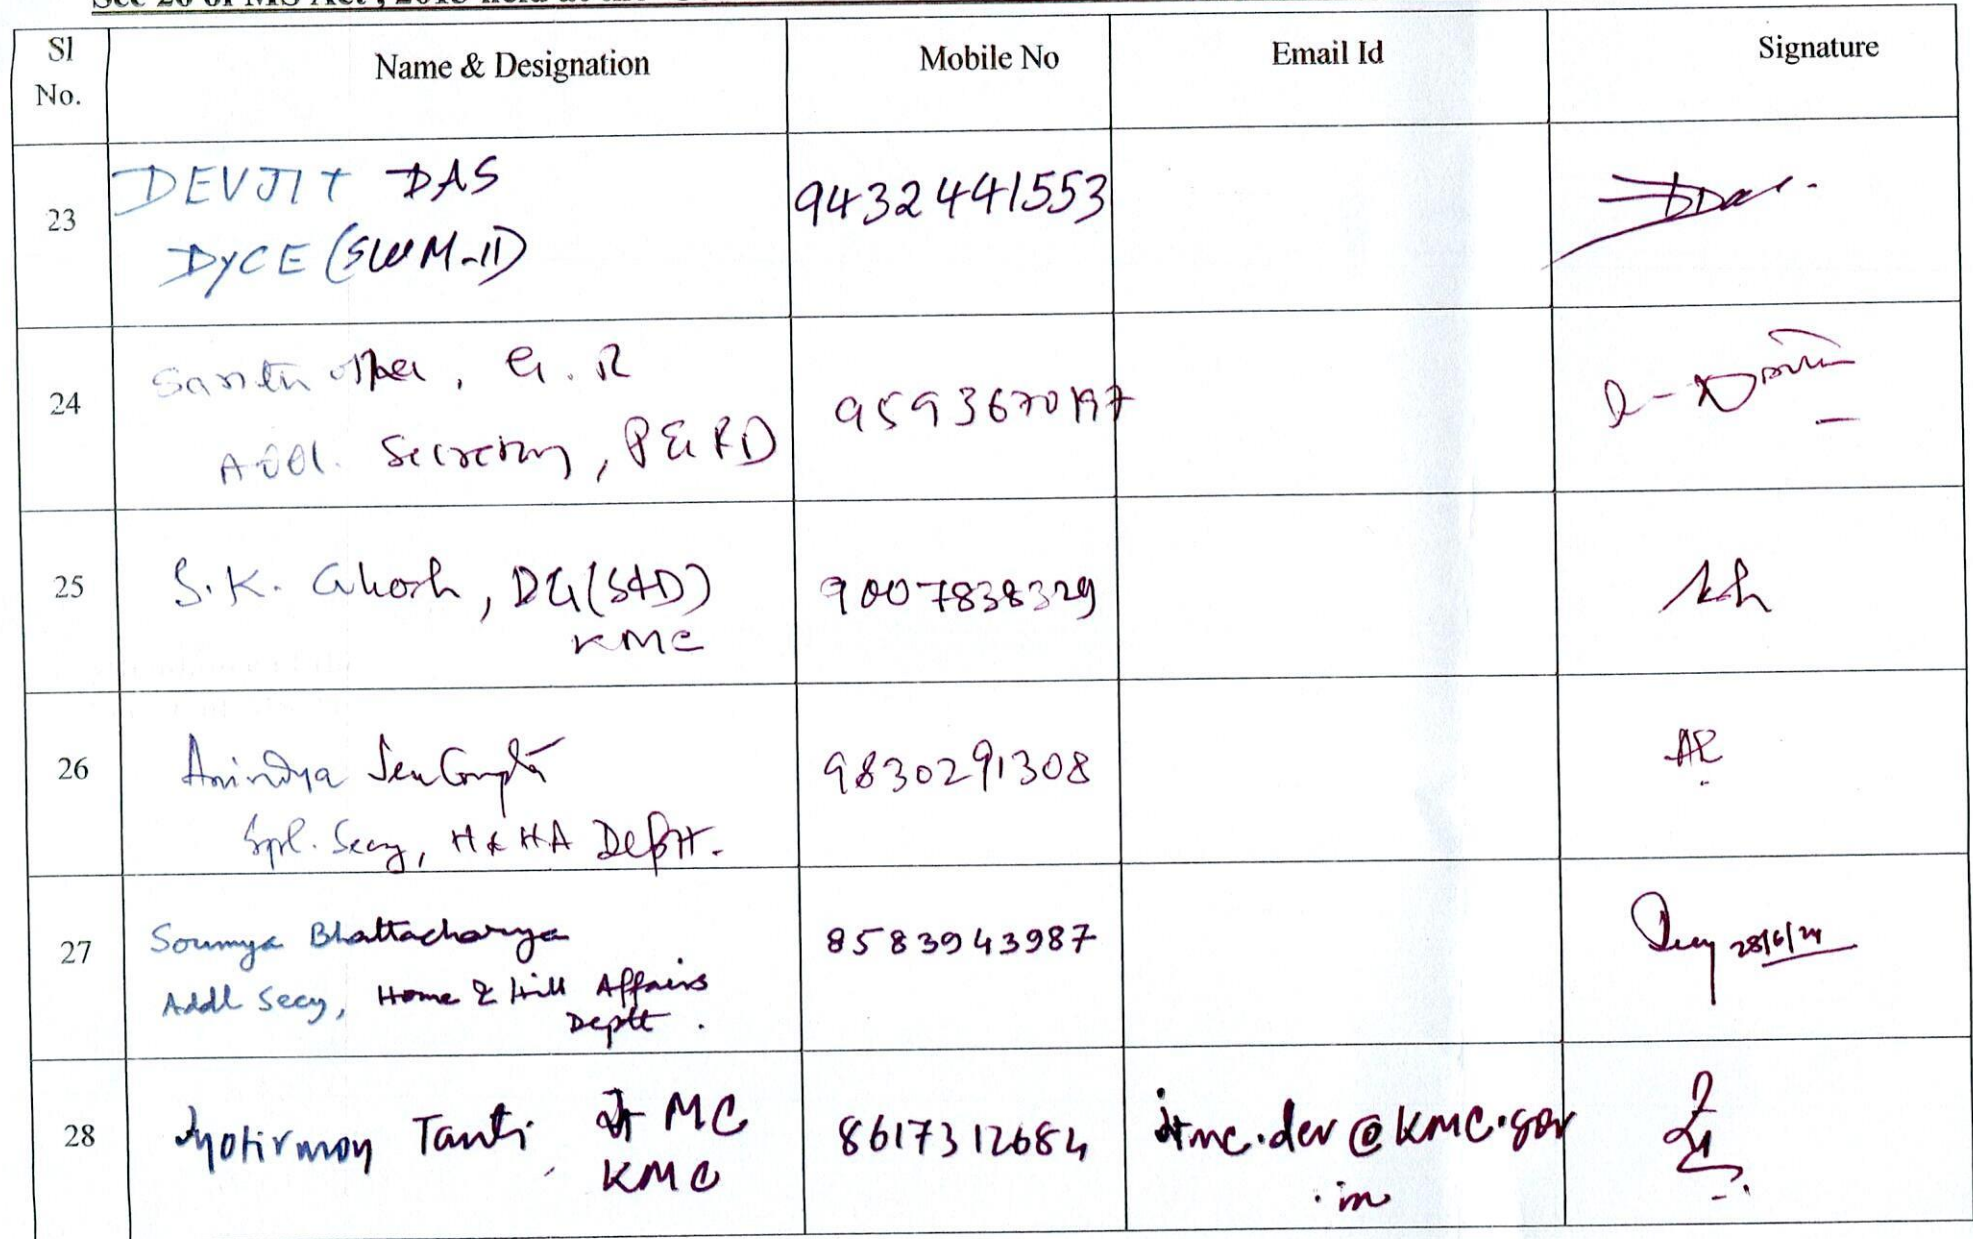 Sl No.
Name & Designation
Mobile No
Email Id
Signature
23
DEVJIT DAS
DyCE (SWM-II)
9432441553
24
G. R
Addl. Secretary, P&RD
9593670197
25
S.K. Ghosh, DG(S&D)
KMC
9007838329
26
Anindya SenGupta
Spl. Secy, H & HA Deptt.
9830291308
27
Soumya Bhattacharya
Addl Secy, Home & Hill Affairs
Deptt.
8583943987
28/6/24
28
Jyotirmoy Tanti, Jt MC
KMC
8617312684
jtmc.dev@kmc.gov
.in